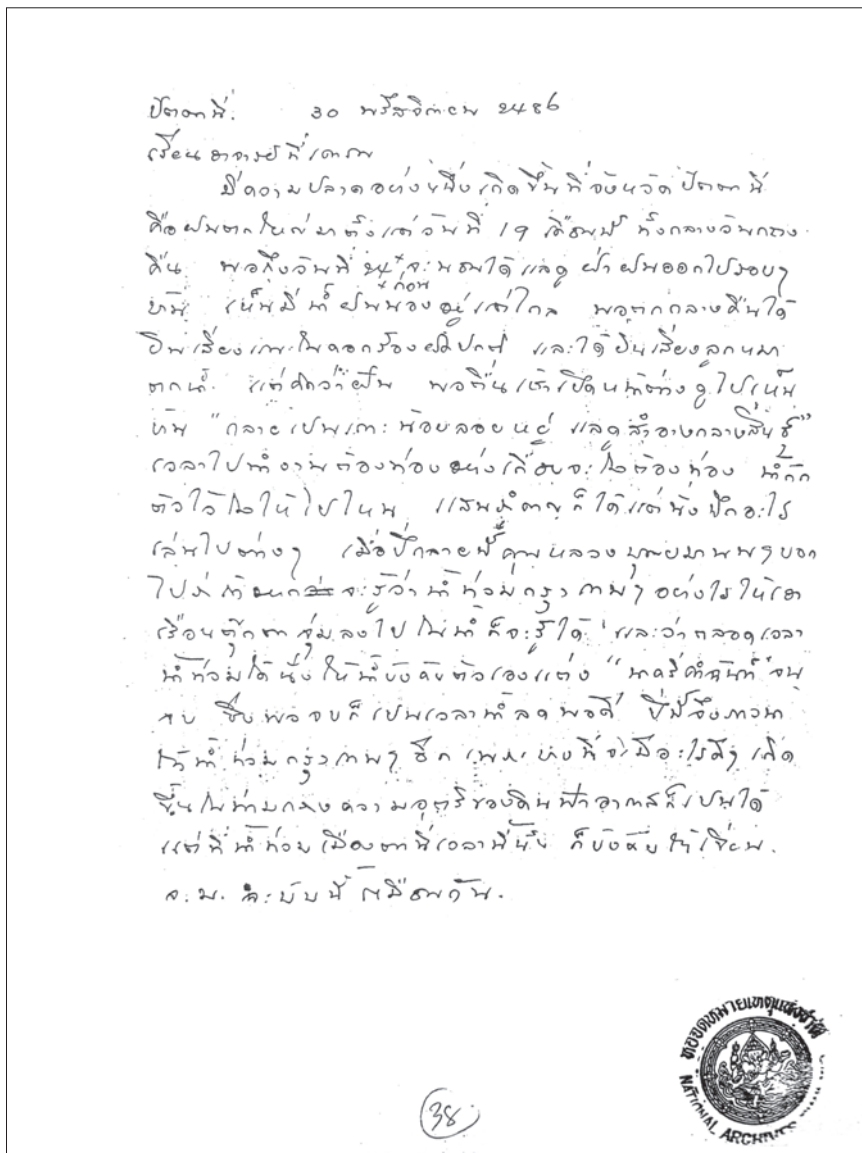 ปัตตานี. 30 พฤศจิกายน 2486
เรียนอาจารย์ที่เคารพ
มีความปลาดอย่างหนึ่งเกิดขึ้นที่จังหวัดปัตตานี
คือฝนตกใหญ่มาตั้งแต่วันที่ 19 เดือนนี้ ทั้งกลางวันกลาง
คืน พอถึงวันที่ 24 ˣ จะนอนได้แลดู ฝ่าฝนออกไปรอบๆ
ˣ ก่อน
เห็นมีน้ำฝนนองอยู่แต่ไกล พอตกกลางคืนได้
ยินเสียง ร้องผิดปกติ และได้ยินเสียงลูกหมา
ตกน้ำ. แต่คิดว่าฝัน พอตื่นเช้าเปิดหน้าต่างดูไปเห็น
"กลายเป็นเกาะน้อยลอยอยู่ แลดูสำอางกลางสินธุ์"
เวลาไปทำงานต้องท่องอย่างเกือบจะไม่ต้องท่อง น้ำกัก
ตัวไว้ไม่ให้ไปไหน แสนรำคาญก็ได้แต่นั่งนึกอะไร
เล่นไปต่างๆ เมื่อปีกลายนี้คุณหลวงบุณยมานพฯบอก
ไปว่าถ้า จะรู้ว่าน้ำท่วมกรุงเทพฯอย่างไรให้เอา
เรือนตุ๊กตาจุ่มลงไปในน้ำก็จะรู้ได้ และว่าตลอดเวลา
น้ำท่วมได้นั่งให้น้ำบังคับตัวเองแต่ง "มาดรีคำฉันท์" จน
จบ ซึ่งพอจบก็เป็นเวลาน้ำลดพอดี ปีนี้จึงภาวนา
ให้น้ำท่วมกรุงเทพฯอีก เพราะ ที่จะมีอะไรดีๆเกิด
ขึ้นในท่ามกลางความอุตริของดินฟ้าอากาศก็เป็นได้
แต่ที่น้ำท่วมเมืองตานีเวลานี้นั้น ก็บังคับให้เขียน.
จ.ม. ฉะบับนี้เหมือนกัน.
38
หอจดหมายเหตุแห่งชาติ
NATIONAL ARCHIVES